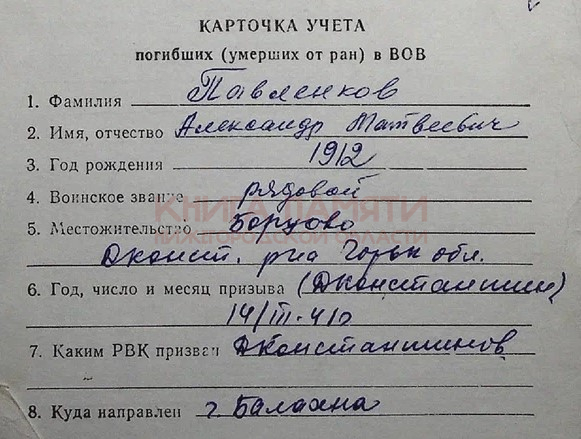 КАРТОЧКА УЧЕТА
погибших (умерших от ран) в ВОВ
1. Фамилия Павленков
2. Имя, отчество Александр Матвеевич
3. Год рождения 1912
4. Воинское звание рядовой
КНИГА ПАМЯТИ
5. Местожительство Борцово
НИЖЕГОРОДСКОЙ ОБЛАСТИ
Дконст. р-на Горьк обл.
6. Год, число и месяц призыва (Дконстантин)
14/III-41г
7. Каким РВК призван Дконстантинов
8. Куда направлен г Балахна